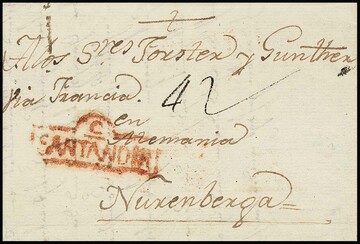 A los S.res Forster y Gunther
via Francia. 42
en
Alemania
C
SANTANDER
Nürenberga